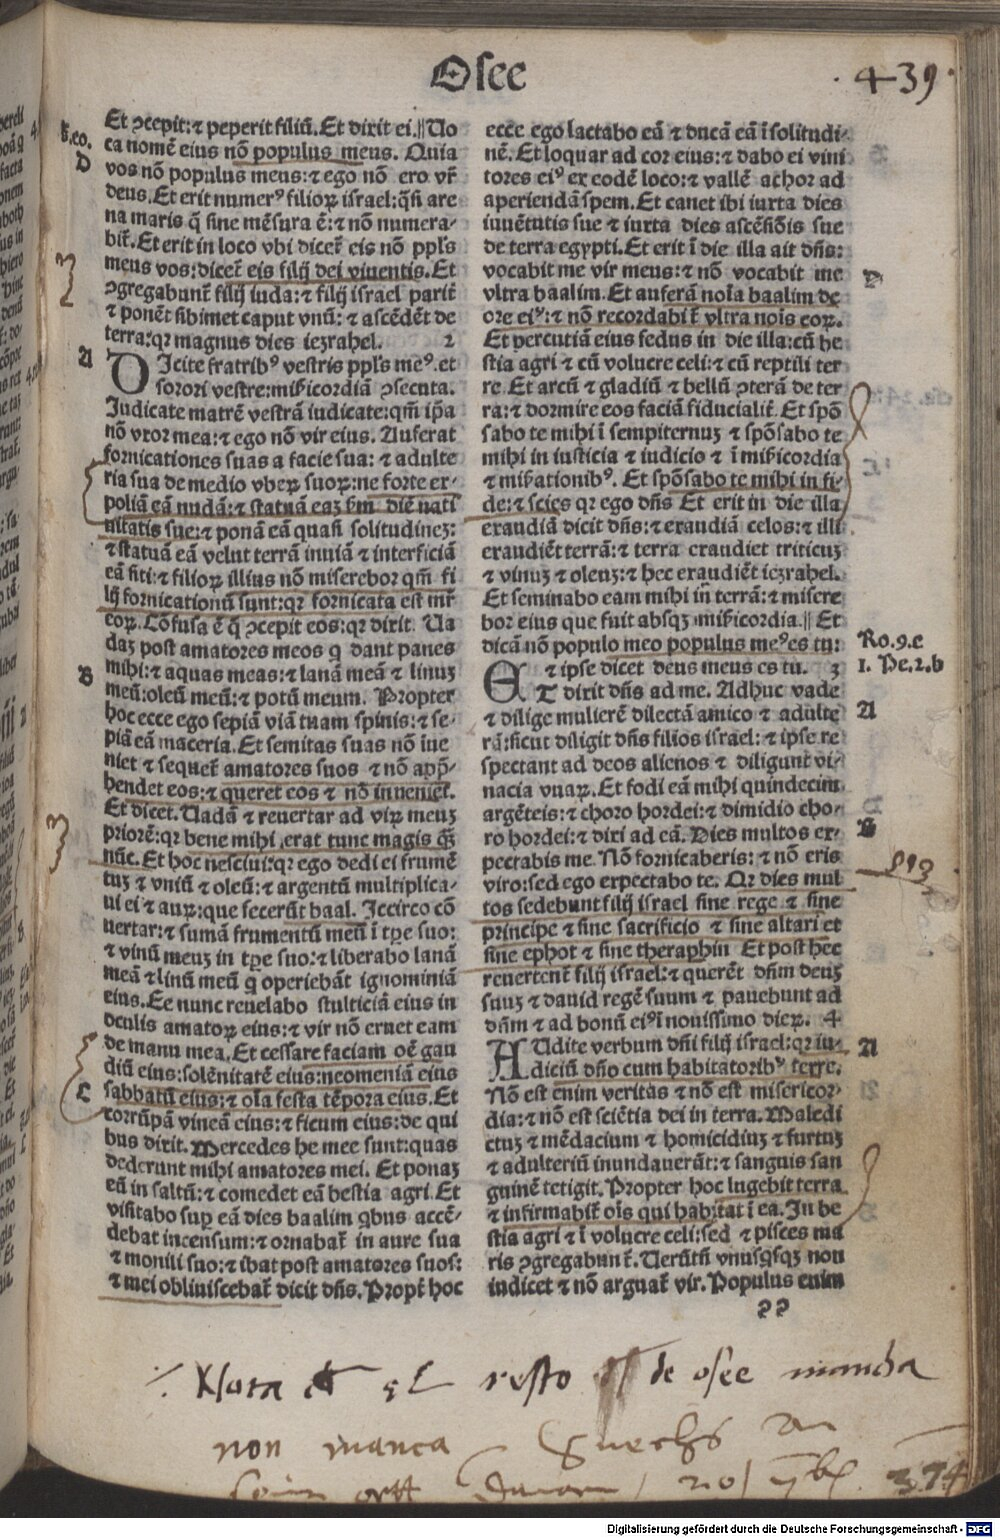 Osee
439
Et ꝯcepit:⁊ peperit filiū.Et dixit ei.||Uo
ca nomē eius nō populus meus. Quia
vos nō populus meus:⁊ ego nō ero vr̄
deus.Et erit numerꝰ filioꝝ israel:q̄si are
na maris q̄ sine mēsura ē:⁊ nō numera-
bit̄.Et erit in loco vbi dicet̄ eis nō ppl's
meus vos:dicet̄ eis filij dei viuentis.Et
ꝯgregabunt̄ filij iuda:⁊ filij israel parit̄
⁊ ponēt sibimet caput vnū:⁊ ascēdēt de
terra:qꝛ magnus dies iezrahel. 2
DIcite fratribꝰ vestris ppl's meꝰ.et
sorori vestre:mĩcordiā ꝯsecuta.
Judicate matrē vestrā iudicate:qm̄ ip̄a
nō vxor mea:⁊ ego nō vir eius. Auferat
fornicationes suas a facie sua:⁊ adulte
ria sua de medio vberꝝ suoꝝ:ne forte ex-
poliā eā nudā:⁊ statuā eaꝫ scd̄m diē nati
uitatis sue:⁊ ponā eā quasi solitudineꝫ:
⁊ statuā eā velut terrā inuiā ⁊ interficiā
eā siti:⁊ filioꝝ illius nō miserebor qm̄ fi
lij fornicationū sunt:qꝛ fornicata est mr̄
eoꝝ. Cōfusa ē q̄ ꝯcepit eos:qꝛ dixit. Ua
daꝫ post amatores meos q̄ dant panes
mihi:⁊ aquas meas:⁊ lanā meā ⁊ linuꝫ
meū:oleū meū:⁊ potū meum. Propter
hoc ecce ego sepiā viā tuam spinis:⁊ se-
piā eā maceria.Et semitas suas nō īue
niet ⁊ sequet̄ amatores suos ⁊ nō app̄-
hendet eos:⁊ queret eos ⁊ nō inueniet.
Et dicet.Uadā ⁊ reuertar ad virꝝ meuꝫ
priorē:qꝛ bene mihi erat tunc magis q̄ꝫ
nūc.Et hoc nesciui:qꝛ ego dedi ei frumē
tuꝫ ⁊ vinū ⁊ oleū:⁊ argentū multiplica-
ui ei ⁊ auꝝ:que fecerūt baal. Jccirco cō
uertar:⁊ sumā frumentū meū ī tꝑe suo:
⁊ vinū meuꝫ in tꝑe suo:⁊ liberabo lanā
meā ⁊ linū meū q̄ operiebāt ignominiā
eius.Ee nunc reuelabo stulticiā eius in
oculis amatoꝝ eius:⁊ vir nō eruet eam
de manu mea.Et cessare faciam oē gau
diū eius:solēnitatē eius:neomeniā eius
sabbatū eius:⁊ oīa festa tēpora eius.Et
corrūpā vineā eius:⁊ ficum eius:de qui
bus dixit.Mercedes he mee sunt:quas
dederunt mihi amatores mei. Et ponaꝫ
eā in saltū:⁊ comedet eā bestia agri.Et
visitabo suꝑ eā dies baalim qbus accē-
debat incensum:⁊ ornabat̄ in aure sua
⁊ monili suo:⁊ ibat post amatores suos:
⁊ mei obliuiscebat̄ dicit dñs.Propt̄ hoc
ecce ego lactabo eā ⁊ ducā eā ī solitudi-
nē.Et loquar ad cor eius:⁊ dabo ei vini
tores eiꝰ ex eodē loco:⁊ vallē achor ad
aperiendā spem.Et canet ibi iuxta dies
iuuētutis sue ⁊ iuxta dies ascēsiōis sue
de terra egypti.Et erit ī die illa ait dñs:
vocabit me vir meus:⁊ nō vocabit me
vltra baalim.Et auferā noīa baalim de
ore eiꝰ:⁊ nō recordabit̄ vltra nois eoꝝ.
Et percutiā eius fedus in die illa:cū be
stia agri ⁊ cū volucre celi:⁊ cū reptili ter
re.Et arcū ⁊ gladiū ⁊ bellū ꝯterā de ter
ra:⁊ dormire eos faciā fiducialit̄.Et spō
sabo te mihi ī sempiternuꝫ ⁊ spōsabo te
mihi in iusticia ⁊ iudicio ⁊ ī mĩcordia
⁊ mĩationibꝰ. Et spōsabo te mihi in fi
de:⁊ scies qꝛ ego dñs Et erit in die illa
exaudiā dicit dñs:⁊ exaudiā celos:⁊ illi
exaudiēt terrā:⁊ terra exaudiet triticuꝫ
⁊ vinuꝫ ⁊ oleuꝫ:⁊ hec exaudiēt iezrahel.
Et seminabo eam mihi in terrā:⁊ misere
bor eius que fuit absqꝫ mĩcordia.|| Et
dicā nō populo meo populus meꝰes tu:
⁊ ipse dicet deus meus es tu. 3
ET dixit dñs ad me. Adhuc vade
⁊ dilige mulierē dilectā amico ⁊ adulte
rā:sicut diligit dñs filios israel:⁊ ipse re
spectant ad deos alienos ⁊ diligunt vi-
nacia vuaꝝ.Et fodi eā mihi quindecim
argēteis:⁊ choro hordei:⁊ dimidio cho-
ro hordei:⁊ dixi ad eā. Dies multos ex-
pectabis me. Nō fornicaberis:⁊ nō eris
viro:sed ego expectabo te. Qꝛ dies mul
tos sedebunt filij israel sine rege ⁊ sine
principe ⁊ sine sacrificio ⁊ sine altari et
sine ephot ⁊ sine theraphin Et post hec
reuertent̄ filij israel:⁊ querēt dñm deuꝫ
suuꝫ ⁊ dauid regē suum ⁊ pauebunt ad
dñm ⁊ ad bonū eiꝰ ī nouissimo dieꝝ. 4
AUdite verbum dñi filij israel:qꝛ iu-
diciū dño cum habitatoribꝰ terre.
Nō est enim veritas ⁊ nō est misericor-
dia:⁊ nō est sciētia dei in terra.Maledi
ctuꝫ ⁊ mēdacium ⁊ homicidiuꝫ ⁊ furtuꝫ
⁊ adulteriū inundauerūt:⁊ sanguis san
guinē tetigit.Propter hoc lugebit terra
⁊ infirmabit̄ oīs qui habitat ī ea.In be
stia agri ⁊ ī volucre celi:sed ⁊ pisces ma
ris ꝯgregabunt̄.Uerūtn̄ vnusqsqꝫ non
iudicet ⁊ nō arguat̄ vir.Populus enim
D
A
B
C
D
Ro.9.e
1. Pe.2.b
A
B
A
Nota
el resto de osee mancha
non manca
374
Digitalisierung gefördert durch die Deutsche Forschungsgemeinschaft - DFG